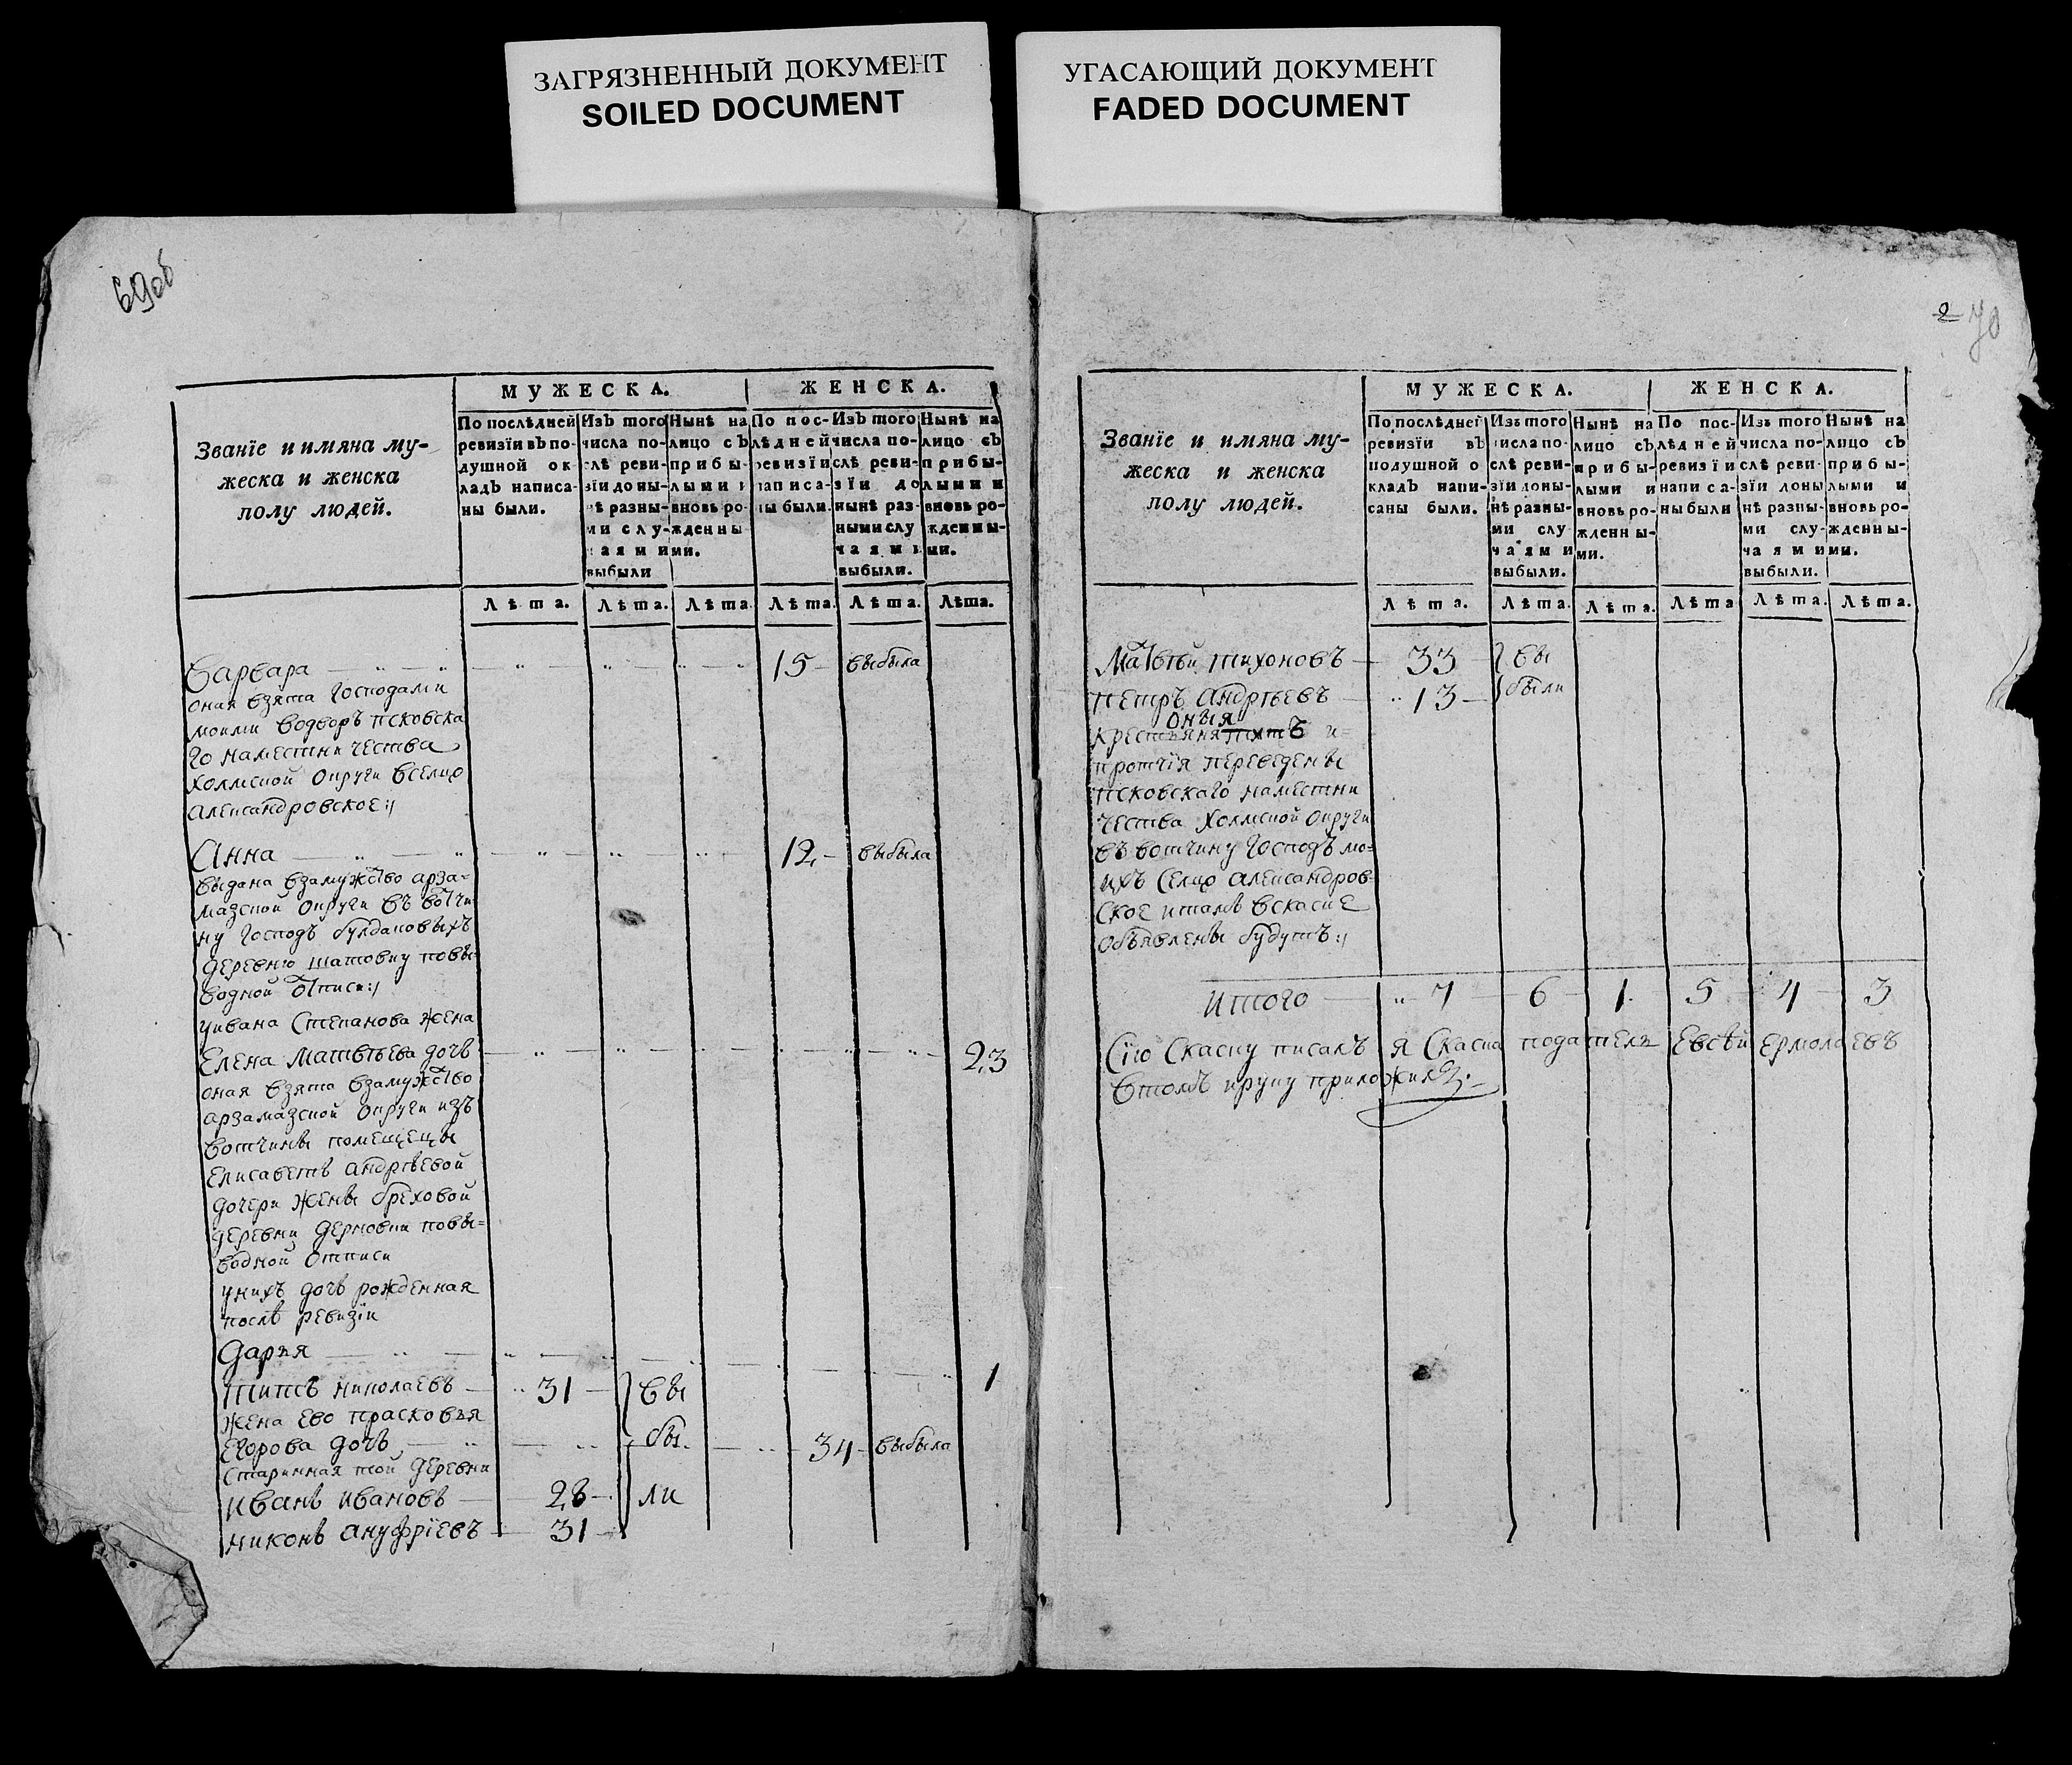 ЗАГРЯЗНЕННЫЙ ДОКУМЕНТ
SOILED DOCUMENT
УГАСАЮЩИЙ ДОКУМЕНТ
FADED DOCUMENT
69об
Званїе и имяна му-
жеска и женска
полу людей.
МУЖЕСКА.
ЖЕНСКА.
По послѣдней
ревизїи въ по-
душной ок-
ладъ написа-
ны были.
Изъ того
числа по-
слѣ реви-
зїи доны-
нѣ разны-
ми слу-
чаями
выбыли
Нынѣ на
лицо съ
прибы-
лыми и
вновь ро-
жденны-
ми.
По пос-
лѣдней
ревизїи
написа-
ны были.
Изъ того
числа по-
слѣ реви-
зїи до
нынѣ раз-
ными слу
чаями
выбыли.
Нынѣ на
лицо съ
прибы-
лыми и
вновь ро-
жденны-
ми.
Лѣта. Лѣта. Лѣта. Лѣта. Лѣта. Лѣта.
Варвара 15 выбыла
оная взята господами
моими водворъ псковска
го наместничества
холмской округи вселцо
александровское:/
Анна 12 выбыла
выдана взамужство арза-
мазской округи въ вотчи
ну господъ булдаковыхъ
деревню шатовку повы
водной отписи:/
уивана Степанова жена
Елена Матвѣева дочь 23
оная взята взамужство
арзамазской округи изъ
вотчины помещецы
Елисаветъ андрѣевой
дочери жены бреховой
деревни дерновки повы=
водной отписи
унихъ дочь рожденная
послѣ ревизїи
Дарья 1
титъ николаевъ 31 вы
жена ево прасковья
Егорова дочь бы 34 выбыла
старинная той деревни
иванъ ивановъ 28 ли
никонъ ануфрїевъ 31
2 70
Званїе и имяна му-
жеска и женска
полу людей.
МУЖЕСКА.
ЖЕНСКА.
По послѣдней
ревизїи въ
подушной о
кладъ напи-
саны были.
Изъ того
числа по-
слѣ реви-
зїи доны-
нѣ разны-
ми слу
чаями
выбыли.
Нынѣ на
лицо съ
прибы-
лыми и
вновь ро-
жденны-
ми.
По пос-
лѣдней
ревизїи
написа-
ны были
Изъ того
числа по-
слѣ реви-
зїи доны
нѣ разны-
ми слу-
чаями
выбыли.
Нынѣ на
лицо съ
прибы-
лыми и
вновь ро-
жденны-
ми.
Лѣта. Лѣта. Лѣта. Лѣта Лѣта. Лѣта.
Матвѣй тихоновъ 33 вы
петръ андрѣевъ 13 были
оныя
крестьяня и=
протчїя переведены
псковскаго наместни
чества холмской округи
въ вотчину господъ мо=
ихъ селцо александров-
ское итамъ вскаске
объявлены будутъ:/
итого 7 6 1 5 4 3
Сїю скаску писалъ я скаски податель Евсѣй ермолаевъ
втомъ ируку приложилъ.